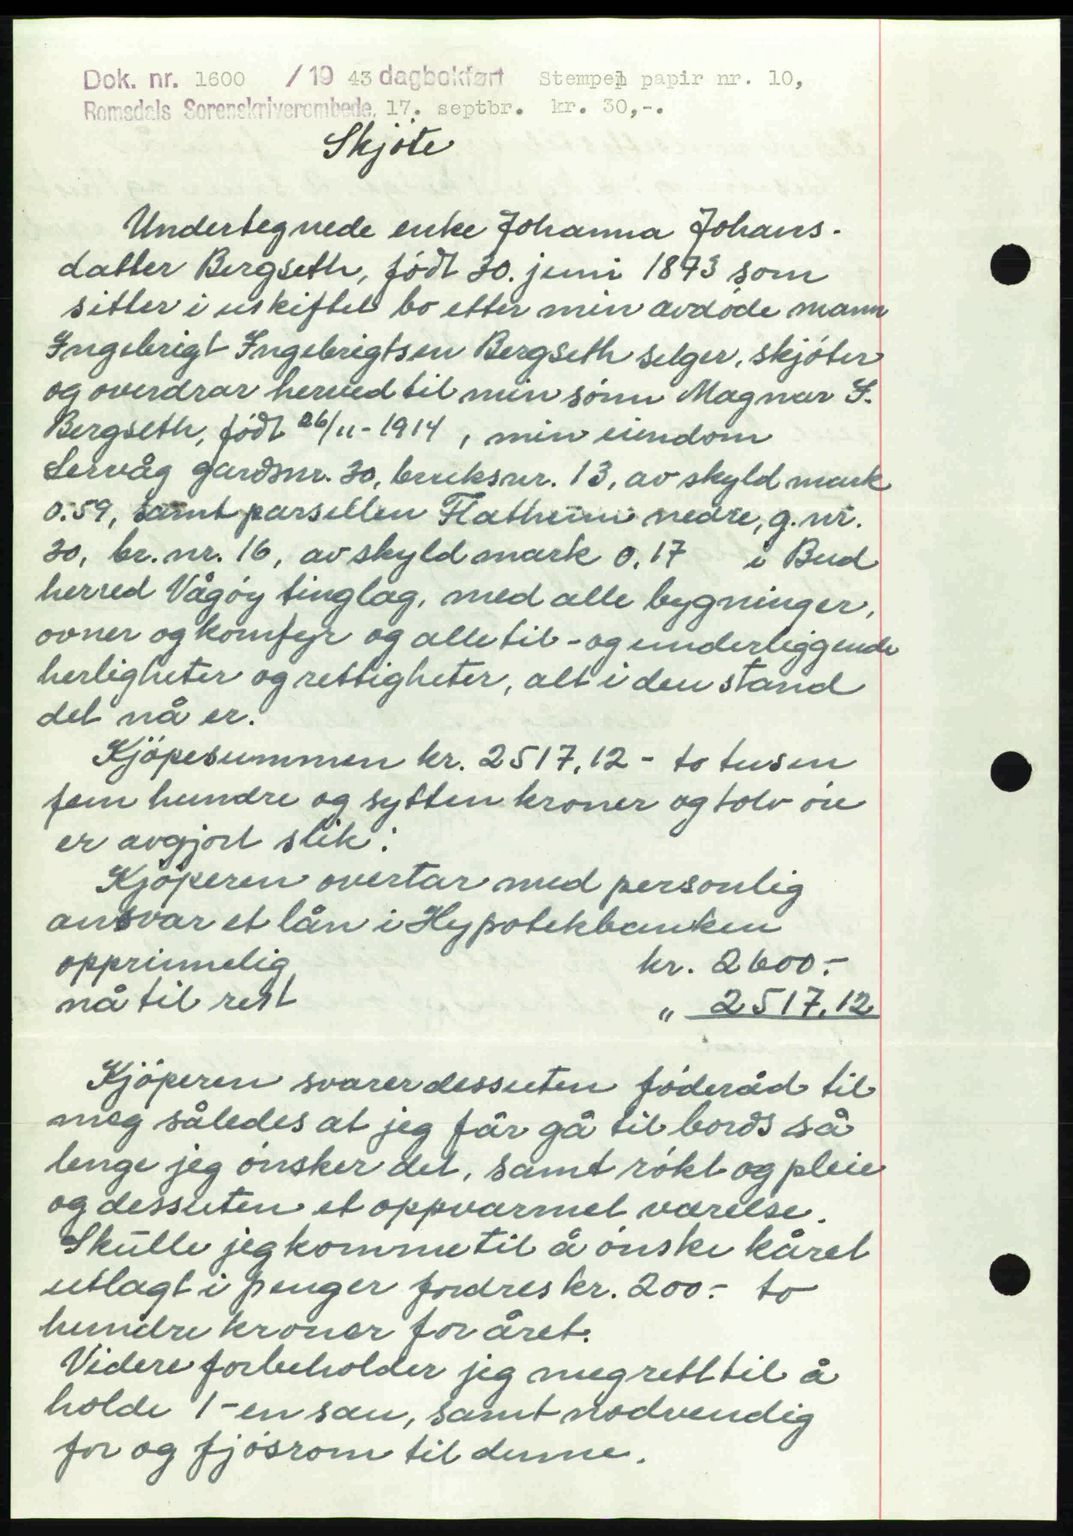 Dok. nr. 1600 /19 43 dagbokført Stempel papir nr. 10,
Romsdals Sorenskriverembede, 17. septbr. kr. 30,-.
Skjöte
Undertegnede enke Johanna Johans-
datter Bergseth, født 30. juni 1873 som
sitter i uskiftet bo etter min avdöde mann
Ingebrigt Ingebrigtsen Bergseth selger, skjöter
og overdrar herved til min sönn Magnar I.
Bergseth, födt 26/11-1914, min eiendom
Lervåg gardsnr. 30, bruksnr. 13, av skyld mark
0.59, samt parsellen Flatheim nedre, g. nr.
30, br. nr. 16, av skyld mark 0.17 i Bud
herred Vågöy tinglag, med alle bygninger,
ovner og komfyr og alle til- og underliggende
herligheter og rettigheter, alt i den stand
det nå er.
Kjöpesummen kr. 2517,12 - to tusen
fem hundre og sytten kroner og tolv öre
er avgjort slik:
Kjöperen overtar med personlig
ansvar et lån i Hypotekbanken
opprinnelig kr. 2600.-
nå til rest " 2517,12
Kjöperen svarer dessuten föderåd til
meg således at jeg får gå til bords så
lenge jeg önsker det, samt rökt og pleie
og dessuten et oppvarmet værelse.
Skulle jeg komme til å önske kåret
utlagt i penger fordres kr. 200.- to
hundre kroner for året.
Videre forbeholder jeg meg rett til å
holde 1-en sau, samt nødvendig
for og fjösrom til denne.